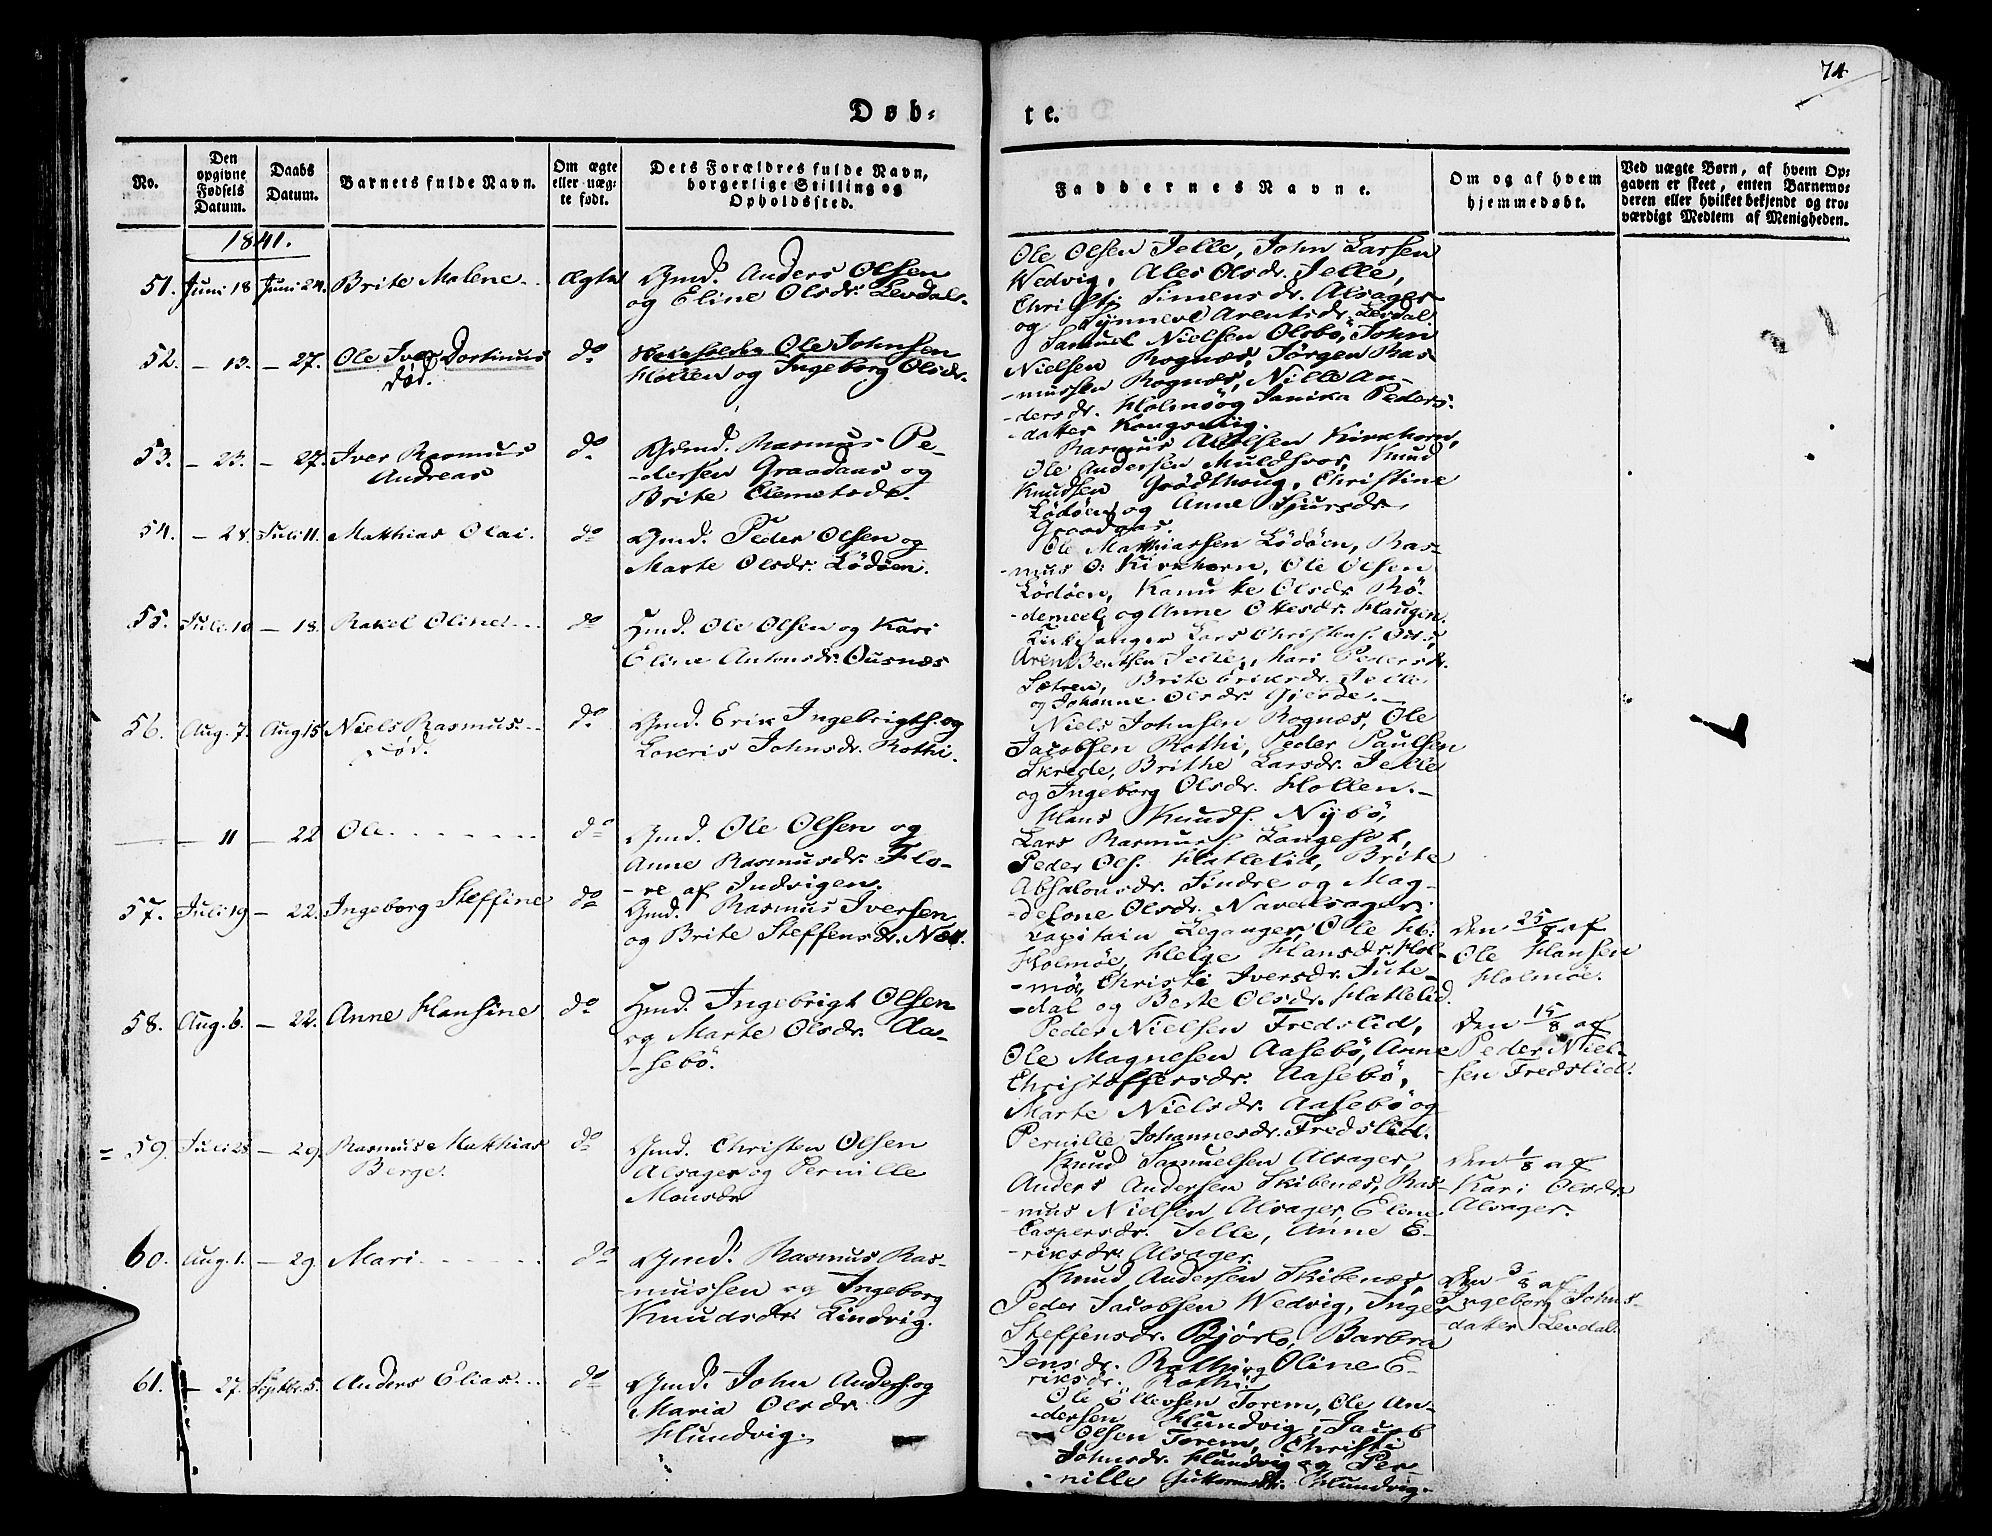 74
Døb-
te.
No.
Den
opgivne
Fødsels
Datum.
Daabs
Datum.
Barnets fulde Navn.
Om ægte
eller uæg-
te født.
Dets Forældres fulde Navn,
borgerlige Stilling og
Opholdssted.
Faddernes Navne.
Om og af hvem
hjemmedøbt.
Ved uægte Børn, af hvem Op-
gaven er skeet, enten Barnemo-
deren eller hvilket bekjendt og tro-
værdigt Medlem af Menigheden.
1841.
51. Juni 18 Juni 24. Brite Malene Ægte
Gmd. Anders Olsen
og Eline Olsdr. Levdal.
Ole Olsen Jelle, John Larsen
Wedvig, Ales Olsdr. Jelle,
Christj Simensdr. Alsager
og Synneve Arentsdr. Levdal
52. — 13. — 27. Ole Iver Dortinus do
død.
Ole Johnsen
Hollen og Ingeborg Olsdr.
Samuel Nielsen Olsbø, John
Nielsen Rognæs, Jørgen Ras-
mussen Rognæs, Nille An-
dersdr. Holmø og Janika Peders-
datter Kongsvig.
53. — 23. — 27. Iver Rasmus do
Andreas
Gmd. Rasmus Pe-
dersen Graadaas og
Brite Clemetsdr.
Rasmus Olsen Kirkhorn,
Ole Andersen Muldsvor, Knud
Knudsen Grødthoug, Christine
Lødøen og Anne Sjursdr.
Graadaas.
54. — 28. Juli 11. Matthias Olai. do
Gmd. Peder Olsen og
Marte Olsdr. Lødøen.
Ole Matthiassen Lødøen, Ras-
mus O. Kirkhorn, Ole Olsen
Lødøen, Olsdr. Rø-
demeel og Anne Ottesdr. Haugen.
55. Juli 10 — 18. Rakel Oline do
Hmd. Ole Olsen og Kari
Eline Antonsdr. Ousnæs
Kirkesanger Lars Christens. Ous,
Arent Bentsen Jelle, Kari Pedersdr.
Sætren, Brite Eriksdr. Jelle
og Johanne Olsdr. Gjerde.
56. Aug. 7. Aug 15 Niels Rasmus do
død.
Gmd. Erik Ingebrigts. og
Lokris Johnsdr. Rothi.
Niels Johnsen Rognæs, Ole
Jacobsen Rothi, Peder Paulsen
Skrede, Brithe Larsdr. Jelle
og Ingeborg Olsdr. Hollen.
— — 11 — 22 Ole do
Gmd. Ole Olsen og
Anne Rasmusdr. Flo-
re af Indvigen.
Hans Knuds. Nybø,
Lars Rasmus. Langeset,
Peder Ols. Hatlelid, Brite
Absalonsdr. Sindre og Mag-
delone Olsdr. Navelsager.
57. Juli 19 — 22. Ingeborg Steffine do
Gmd. Rasmus Iversen
og Brite Steffensdr. Næs.
Capitain Leganger, Ole H.
Holmøe, Helge Hansdr. Hol-
mø, Christi Iversdr. Jute-
dal og Berte Olsdr. Hatlelid.
Den 25/7 af
Ole Hansen
Holmøe.
58. Aug. 6. — 22. Anne Hansine do
Hmd. Ingebrigt Olsen
og Marte Olsdr. Aa-
sebø.
Peder Nielsen Fredslid,
Ole Magnesen Aasebø, Anne
Christoffersdr. Aasebø,
Marte Nielsdr. Aasebø og
Pernille Johannesdr. Fredslid.
Den 15/8 af
Peder Niel-
sen Fredslid.
= 59. Juli 28 — 29. Rasmus Matthias do
Berge.
Gmd. Christen Olsen
Alsager og Pernille
Monsdr
Knud Samuelsen Alsager,
Anders Andersen Skibenæs, Ras-
mus Nielsen Alsager, Elene
Caspersdr. Jelle, Anne E-
riksdr. Alsager.
Den 1/8 af
Kari Olsdr.
Alsager.
60. Aug. 1. — 29. Mari do
Gmd. Rasmus Ras-
mussen og Ingeborg
Knudsdr. Lindvig.
Knud Andersen Skibenæs,
Peder Jacobsen Wedvig, Inger
Steffensdr. Bjørlo, Barbra
Jensdr. Rothi og Oline E-
riksdr. Rothi.
Den 3/8 af
Ingeborg Johns-
datter Levdal.
61. — 27. Septbr. 5. Anders Elias do
Gmd. John Anders. og
Maria Olsdr.
Hundvig.
Ole Ellevsen Torem, Ole An-
dersen Hundvig, Jacob
Olsen Torem, Christi
Johnsdr. Hundvig og Per-
nille Guttormsdr. Hundvig.